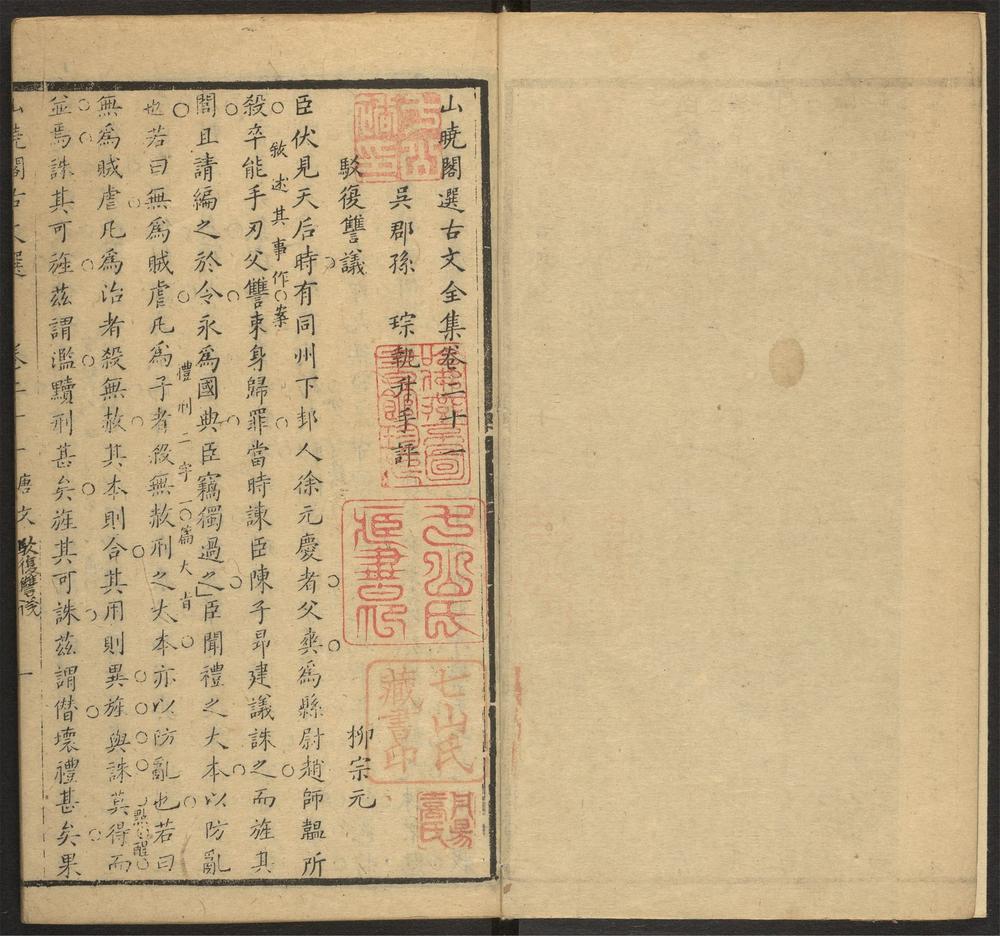 山曉閣選古文全集卷二十一
吳郡孫　琮執升手評
駁復讐議　柳宗元
臣伏見天后時有同州下邽人徐元慶者父爽爲縣尉趙師韞所
敘述其事作案
殺卒能手刃父讐束身歸罪當時諫臣陳子昻建議誅之而旌其
閭且請編之於令永爲國典臣竊獨過之臣聞禮之大本以防亂
禮刑二字一篇大旨
也若曰無爲賊虐凡爲子者殺無赦刑之大本亦以防亂也若曰
點醒
無爲賊虐凡爲治者殺無赦其本則合其用則異旌與誅莫得而
並焉誅其可旌茲謂濫黷刑甚矣旌其可誅茲謂僭壞禮甚矣果
山曉閣古文選　卷二十一唐文　駁復讐議　一
七山氏
藏書印
七山氏
藏書印